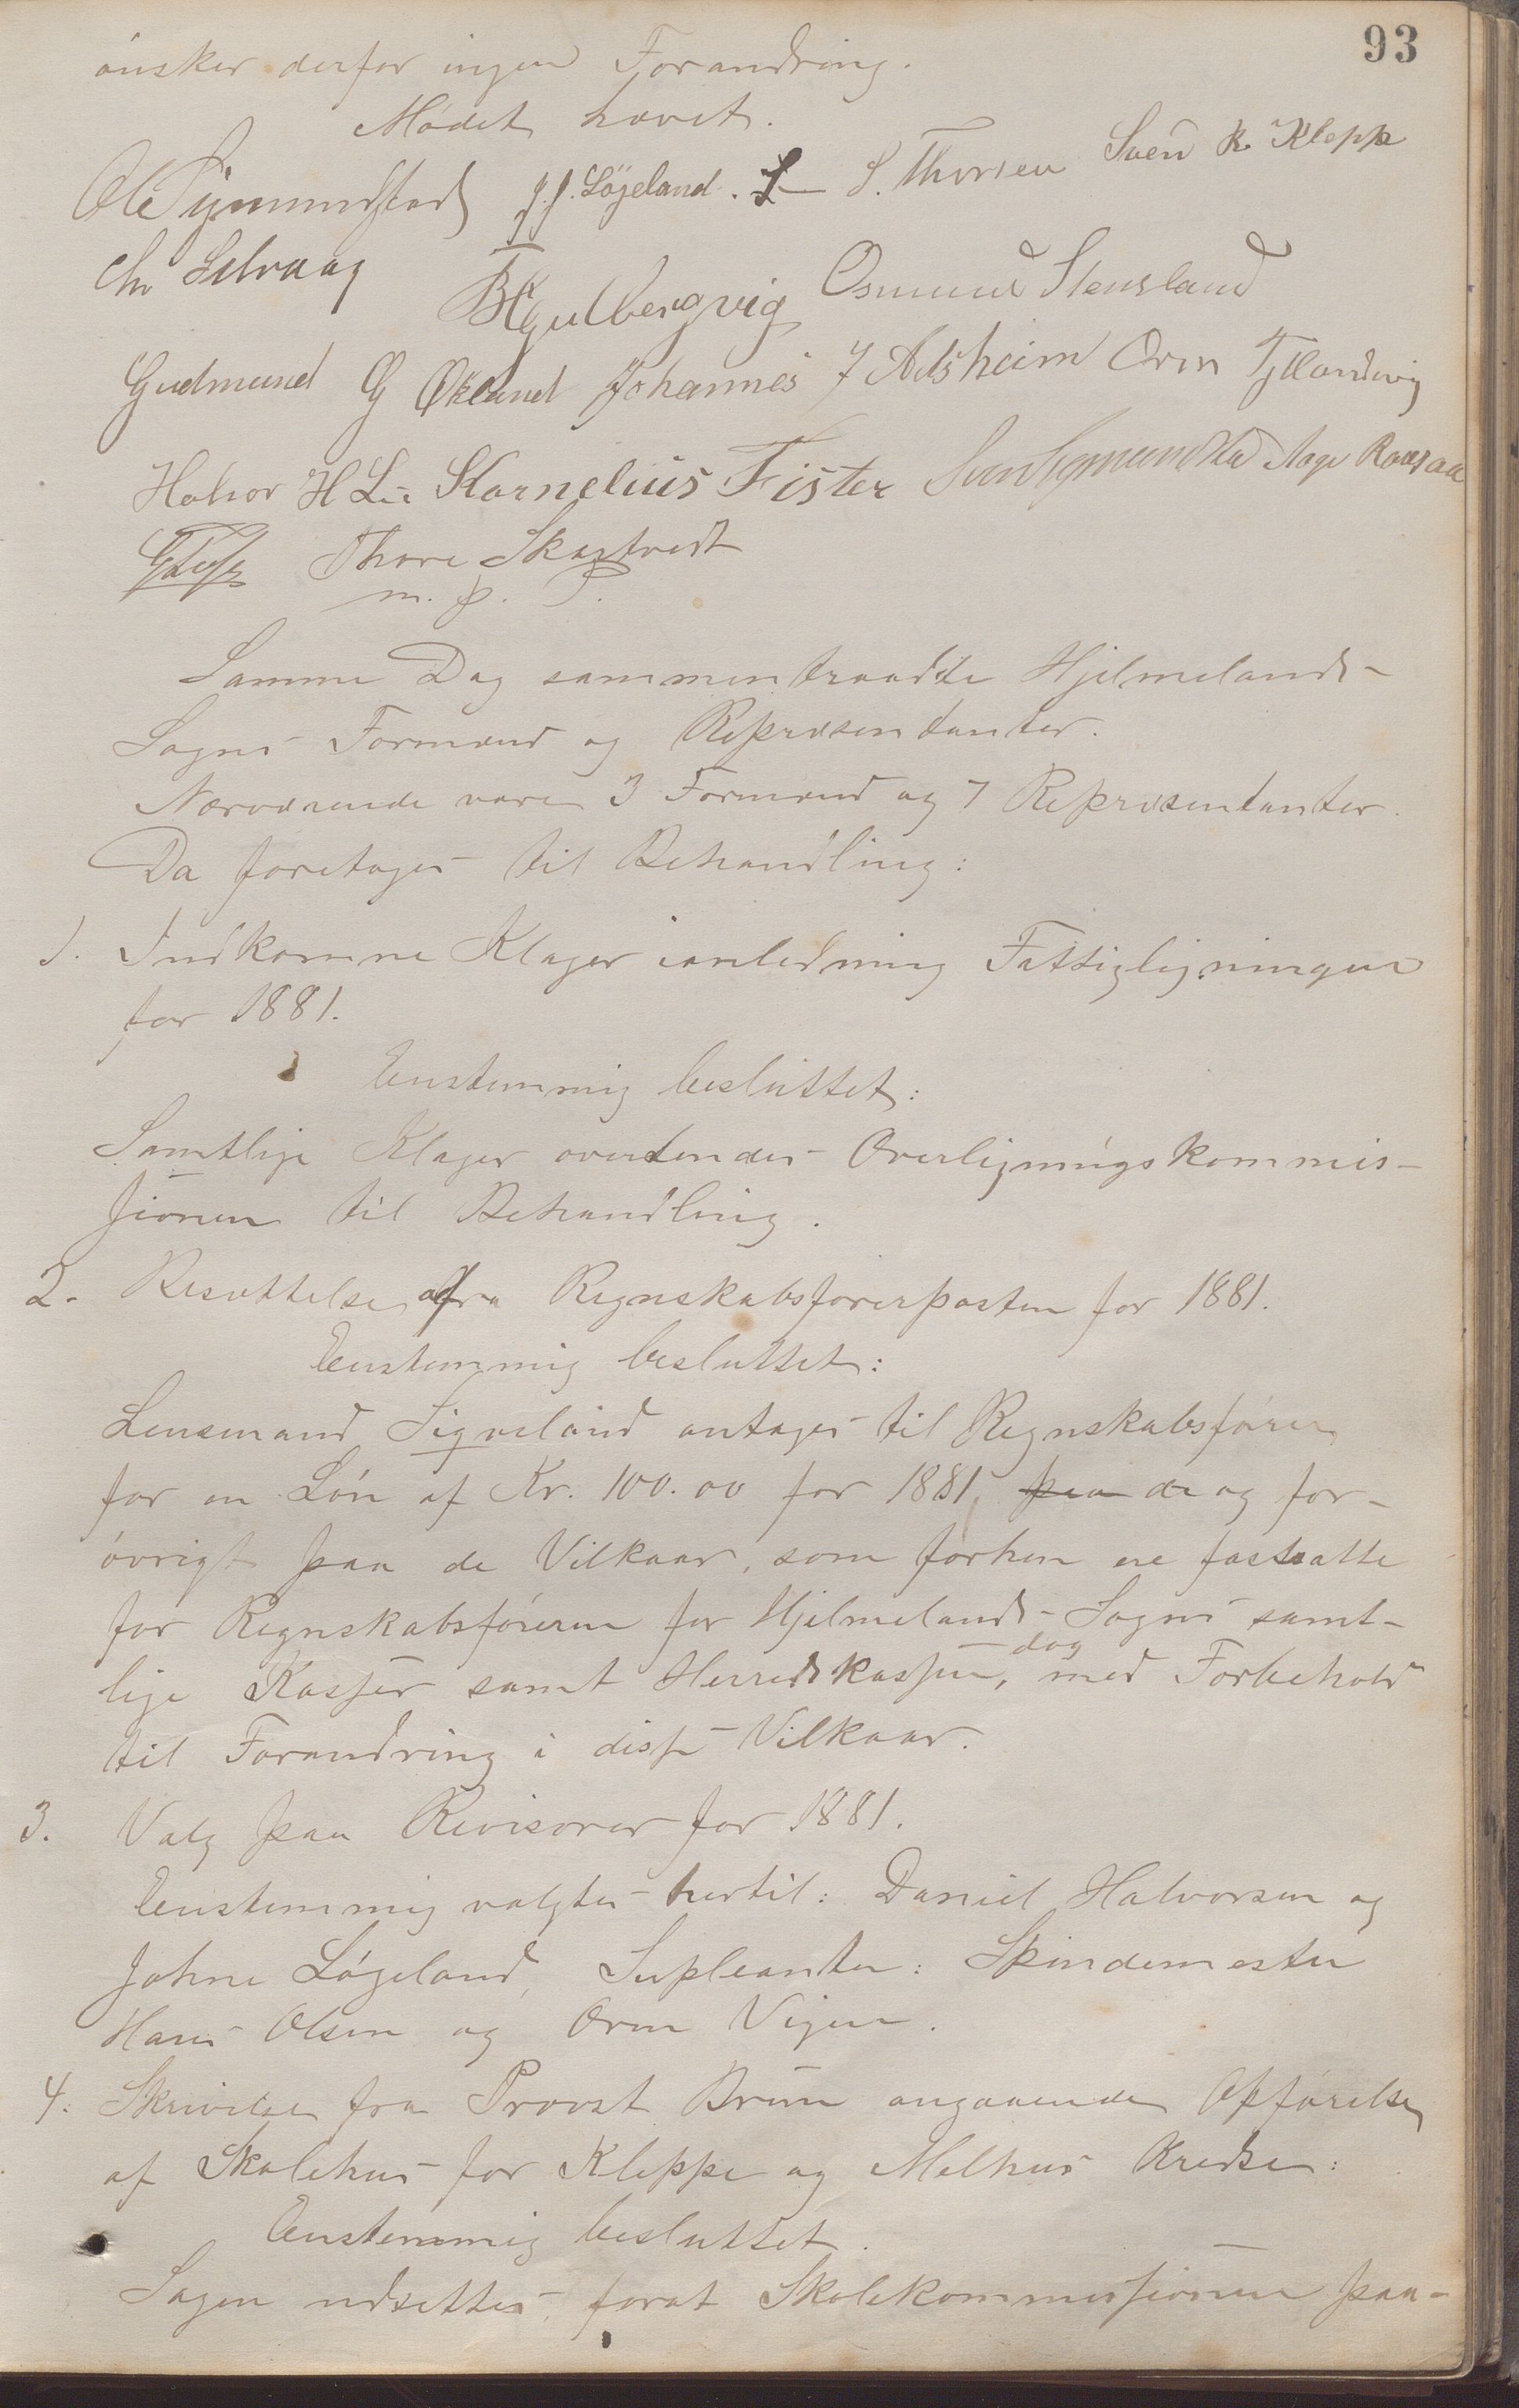 93
ønsker derfor ingen Forandring.
Mødet hævet.
Ole Sigmundstad J. J. Løgeland. S. Thorsen Svend K Kleppe
Chr Selvaag
BKGulbergvig Osmund Stensland
Gudmund G Økland Johannes J Adsheim Orm Tytlandsvig
Halvor H Lie Kornelius Fister Aage Raasaa
Thore Skaftvedt
m. p. P.
Samme Dag sammentraadte Hjelmelands-
Sogns Formænd og Repræsentanter.
Nærværende vare 3 Formænd og 7 Repræsentanter.
Da foretoges til Behandling:
1. Indkomne Klager ianledning Fattigligningen
for 1881.
Enstemmig besluttet:
Samtlige Klager oversendes Overligningskommis-
sionen til Behandling.
2. Besættelse af Regnskabsførerposten for 1881.
Enstemmig besluttet:
Lensmand Sigveland antages til Regnskabsfører
for en Løn af Kr. 100.00 for 1881, paa de og for-
øvrigt paa de Vilkaar, som forhen ere fastsatte
for Regnskabsføreren for Hjelmelands Sogns samt-
lige Kasser samt Herredskassen, dog med Forbehold
til Forandring i disse Vilkaar.
3. Valg paa Revisorer for 1881.
Enstemmig valgtes hertil: Daniel Halvorsen og
Johne Løgeland, Supleanter: Spindemester
Hans Olsen og Orm Vigen.
4. Skrivelse fra Provst Brun angaaende Opførelse
af Skolehus for Kleppe og Melhus Kredse:
Enstemmig besluttet.
Sagen udsættes, forat Skolekommissionen paa-